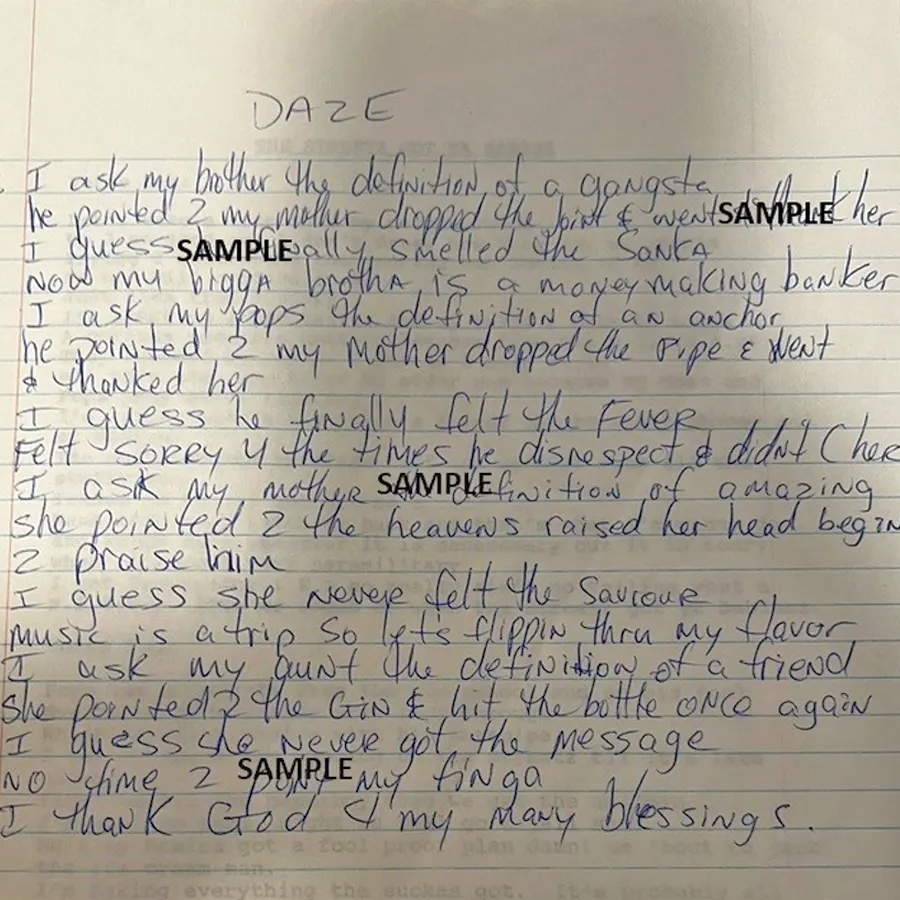 DAZE
I ask my brother the definition of a gangsta
he pointed 2 my mother dropped the joint & went SAMPLE her
I guess SAMPLE smelled the SANKA
NOW my biggA brothA is a moneymaking banker
I ask my pops the definition of AN anchor
he pointed 2 my Mother dropped the Pipe & Went
& thanked her
I guess he finally felt the FeveR
Felt SORRY 4 the times he disrespect & didn't Cher
I ask my motheR SAMPLE definition of amazing
She pointed 2 the heavens raised her head begin
2 praise him
I guess she NeveR felt the SaviouR
music is a trip So let's flippin thru my flavor
I ask my aunt the definition of a friend
She pointed 2 the GiN & hit the bottle ONCe again
I guess she Never got the message
NO time 2 SAMPLE my finga
I thank God 4 my many blessings.